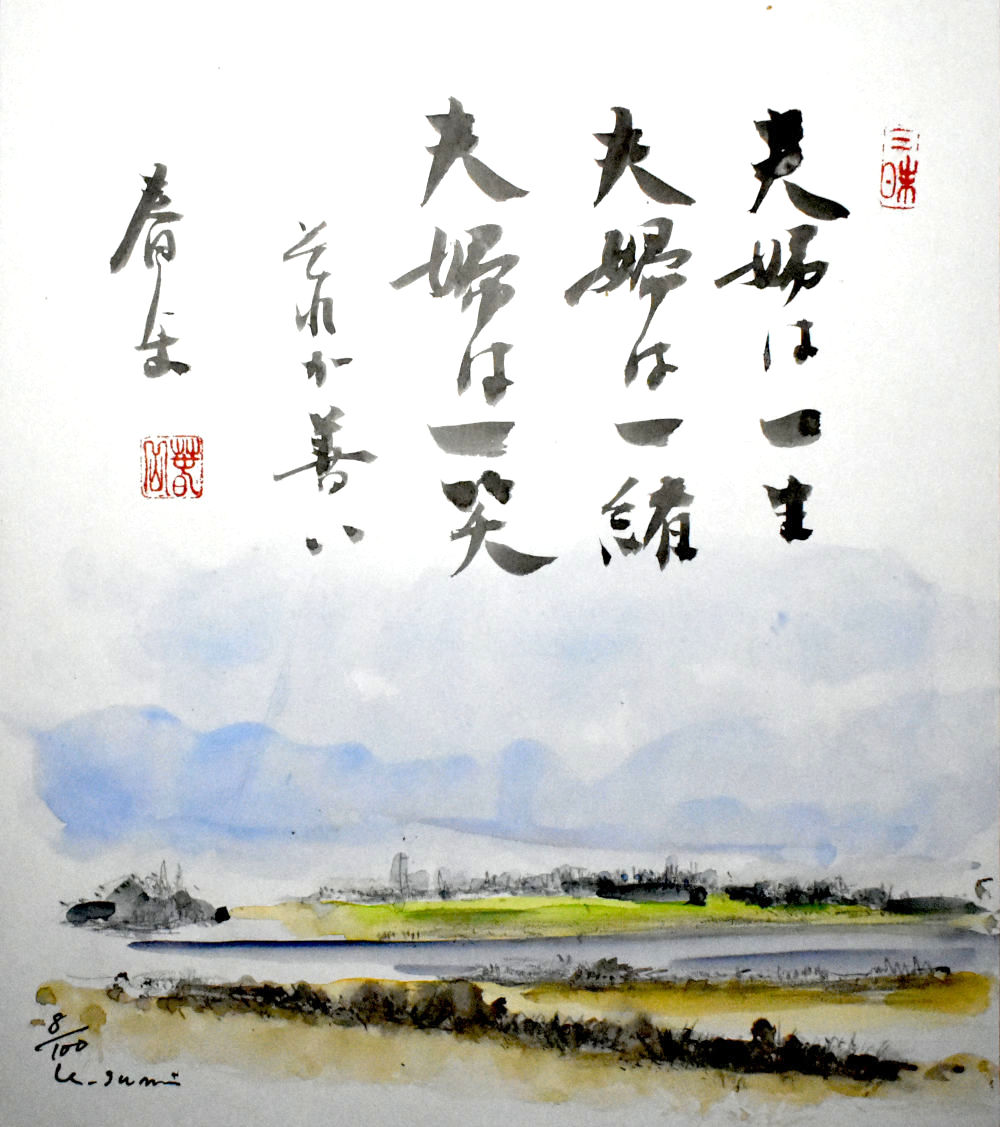 三昧
夫婦は一生
夫婦は一緒
夫婦は一笑
それが善い
8/100